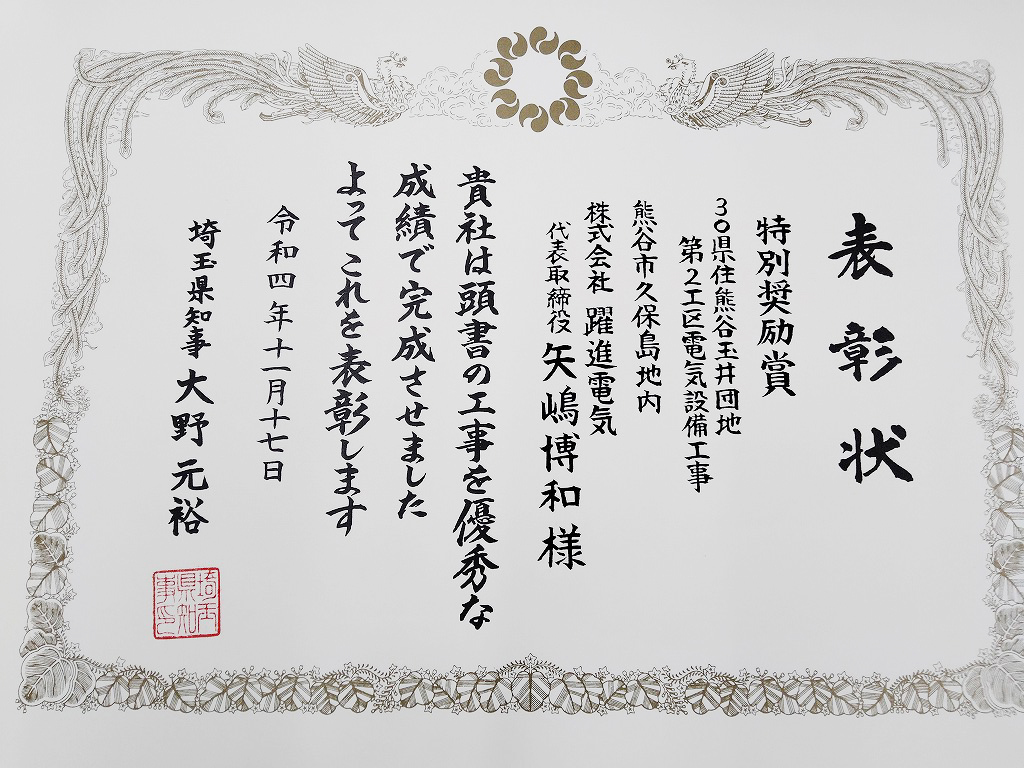 表彰状
特別奨励賞
30県住熊谷玉井団地
第2工区電気設備工事
熊谷市久保島地内
株式会社 躍進電気
代表取締役 矢嶋博和様
貴社は頭書の工事を優秀な
成績で完成させました
よってこれを表彰します
令和四年十一月十七日
埼玉県知事 大野元裕
埼玉
県知
事印